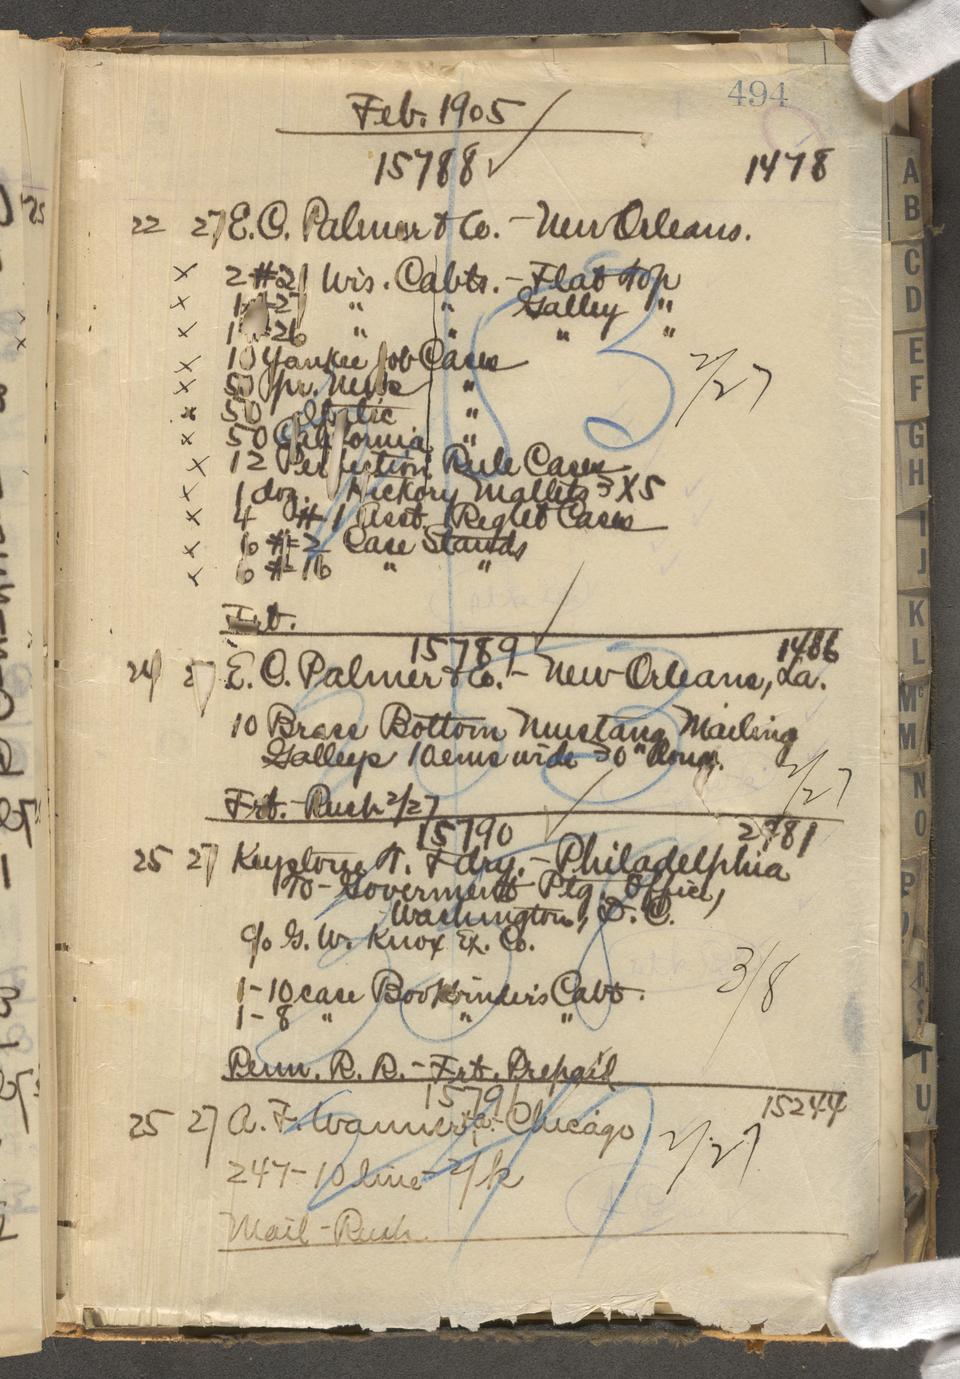 494
Feb. 1905
15788 1478
22 27 E. C. Palmer & Co. - New Orleans.
x 2 #21 Wis. Cabts. - Flat Top
x 1 #27 " " Galley "
x 1 #26 " " " "
x 10 Yankee Job Cases
x 50 pr. News "
x 50 Italic "
x 50 California "
x 12 Perfection Rule Cases
x 1 doz. Hickory Mallets 3X5
x 4 #1 Asst. Reglet Cases
x 6 #2 Case Stands
x 6 #16 " "
2/27
Frt.
15789 1486
24 27 E. C. Palmer & Co. - New Orleans, La.
10 Brass Bottom Mustang Mailing
Galleys 10 ems wide 30" long.
2/27
Frt. Rush 2/27
15790 2781
25 27 Keystone T. Fdry. - Philadelphia
To - Goverment Ptg. Office,
Washington, D. C.
c/o G. W. Knox Ex. Co.
3/8
1-10 case Bookbinder's Cabt.
1-8 " " "
Penn. R. R. - Frt. Prepaid
15791 15244
25 27 A. F. Wanner & Co. - Chicago 2/27
247-10 line
Mail - Rush
A
B
C
D
E
F
G
H
I
J
K
L
Mc
M
N
O
P
R
S
T
U